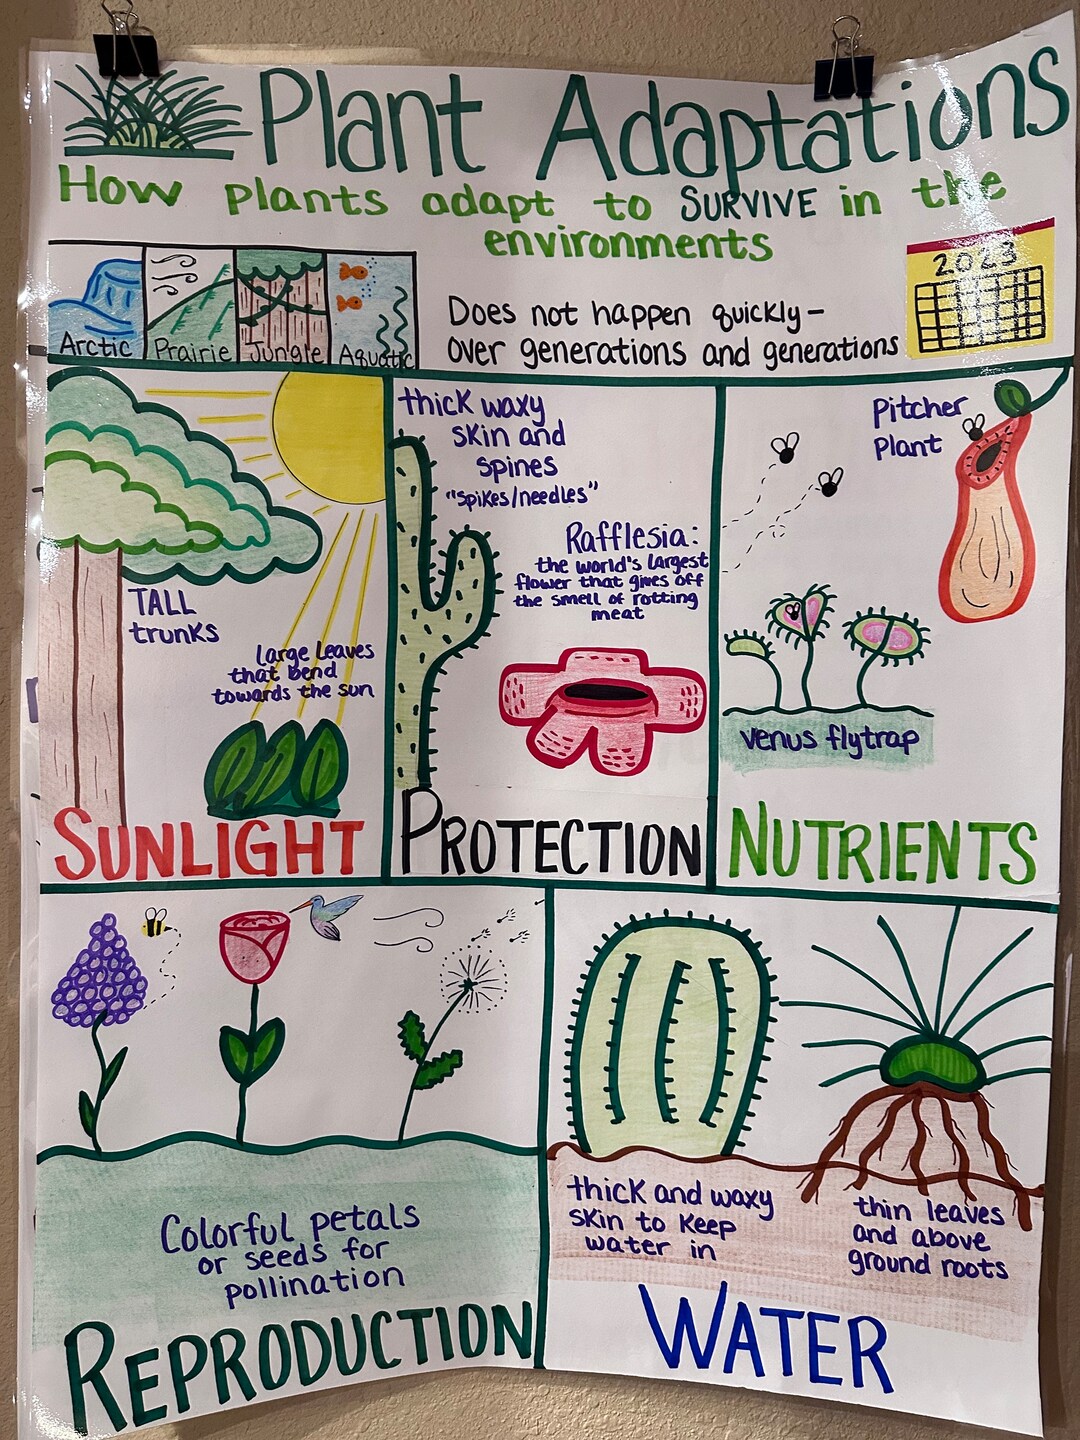 Plant Adaptations
How plants adapt to SURVIVE in the
environments
Arctic
Prairie
Jungle
Aquatic
Does not happen quickly-
over generations and generations
2023
TALL
trunks
large leaves
that bend
towards the sun
SUNLIGHT
thick waxy
skin and
spines
"spikes/needles"
Rafflesia:
the world's largest
flower that gives off
the smell of rotting
meat
PROTECTION
Pitcher
Plant
venus flytrap
NUTRIENTS
Colorful petals
or seeds for
pollination
REPRODUCTION
thick and waxy
skin to keep
water in
thin leaves
and above
ground roots
WATER